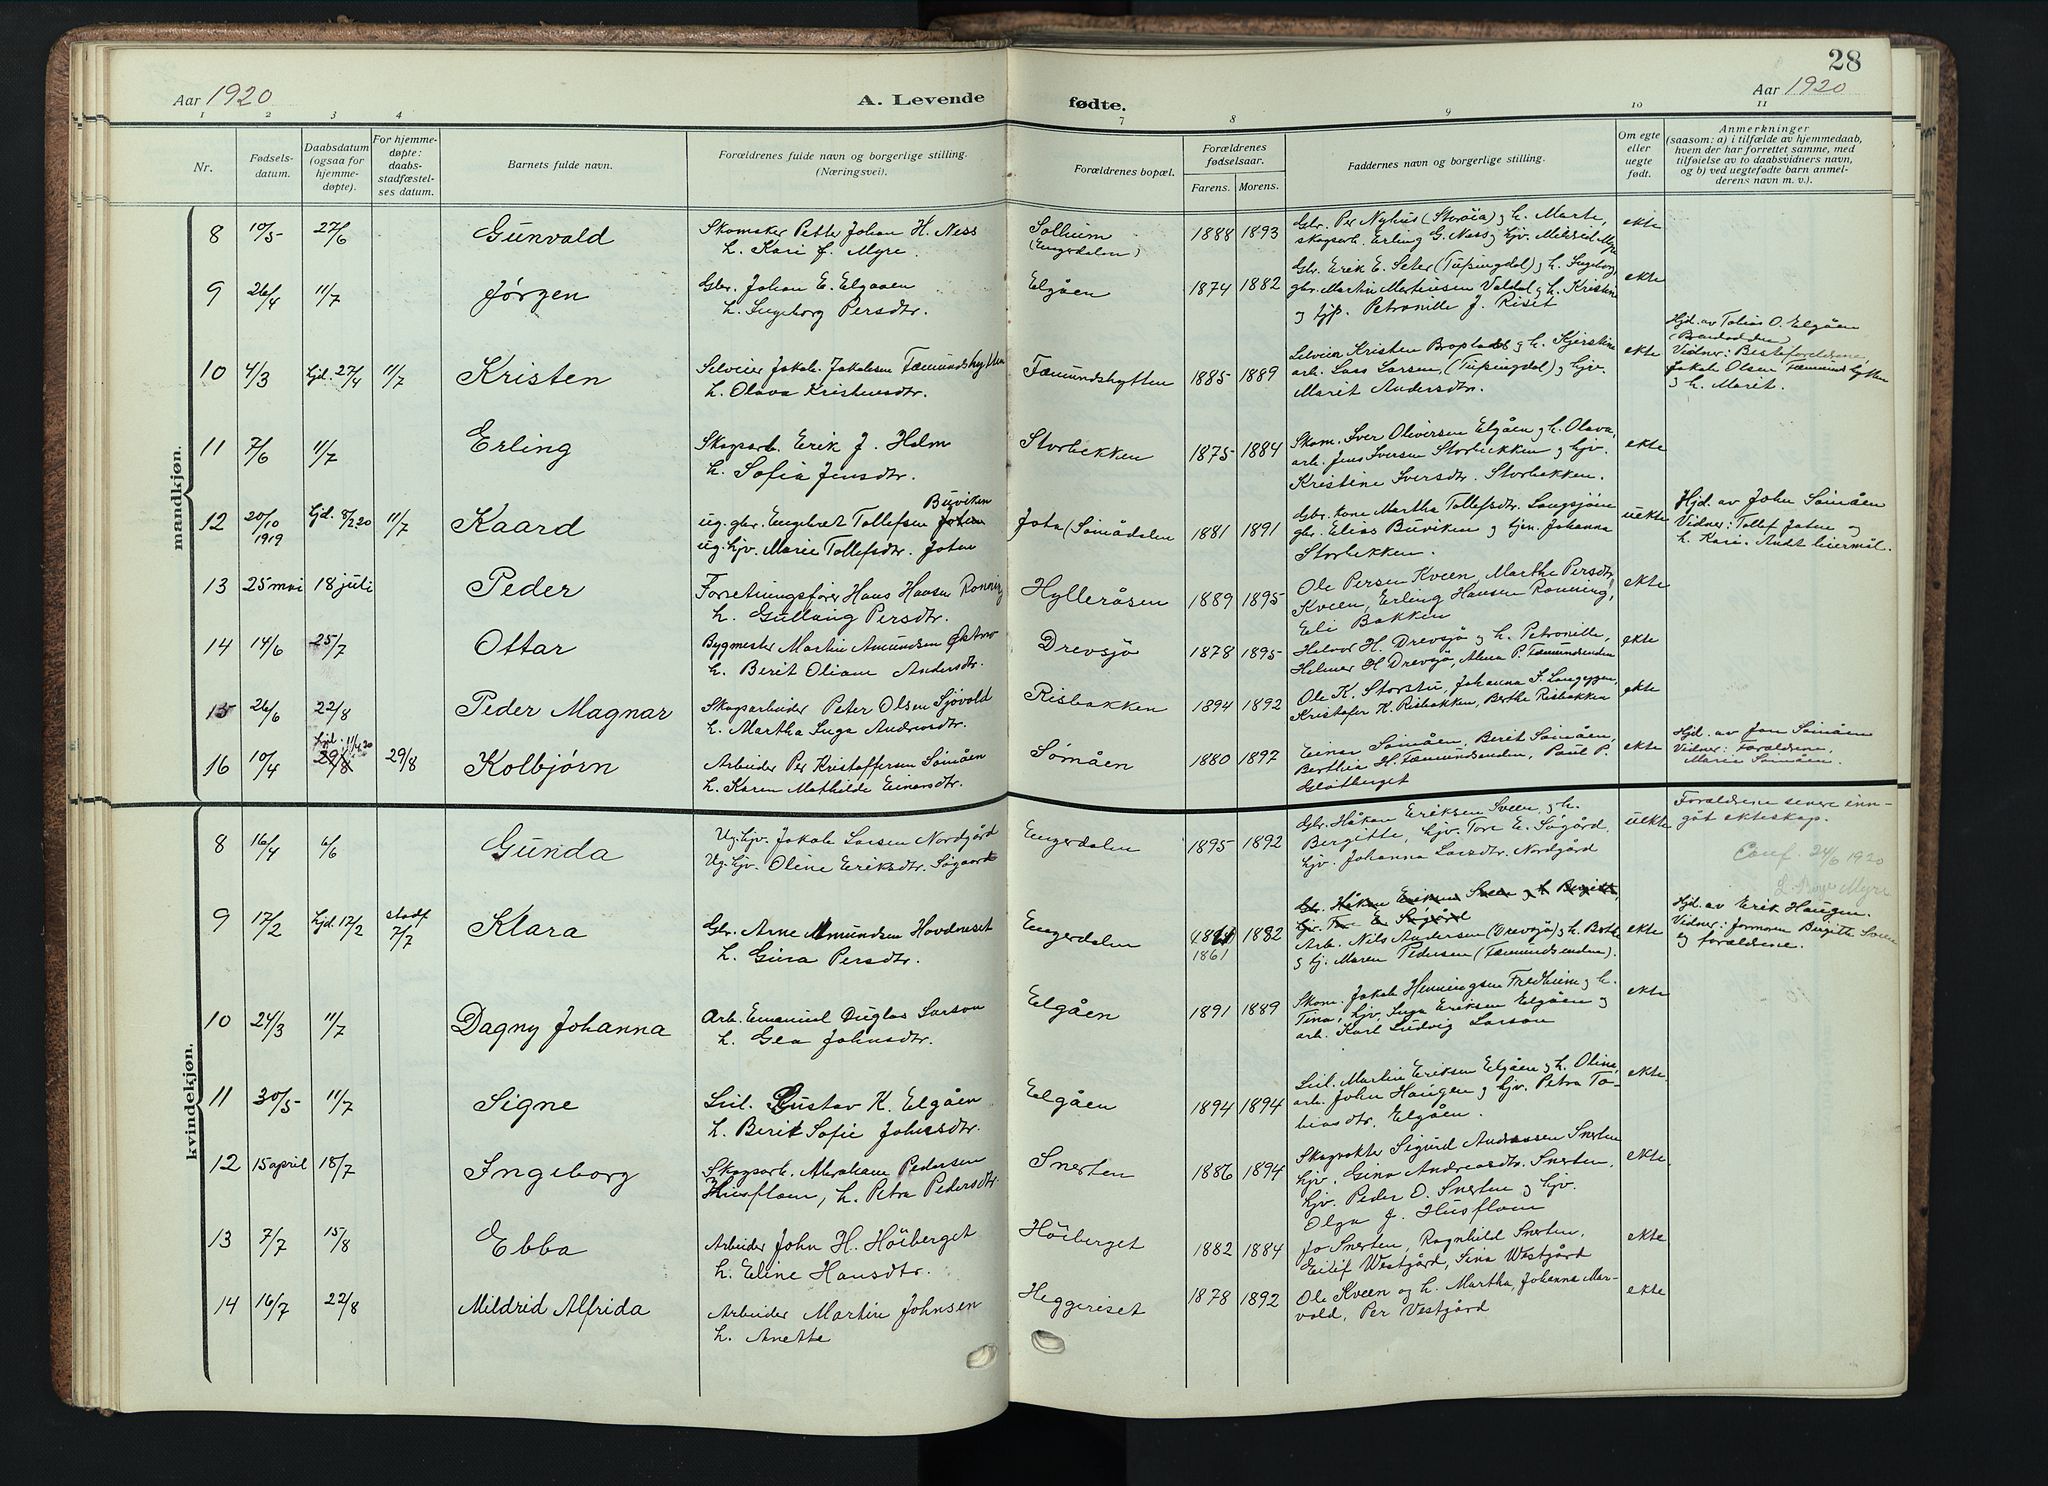 28
Aar 1920
A. Levende
fødte.
Aar 1920
1 2 3 4 7 8 9 10 11
Nr.
Fødsels-
datum.
Daabsdatum
(ogsaa for
hjemme-
døpte).
For hjemme-
døpte:
daabs-
stadfæstel-
ses datum.
Barnets fulde navn.
Forældrenes fulde navn og borgerlige stilling.
(Næringsvei).
Forældrenes bopæl.
Forældrenes
fødselsaar.
Farens. Morens.
Faddernes navn og borgerlige stilling.
Om egte
eller
uegte
født.
Anmerkninger
(saasom: a) i tilfælde av hjemmedaab,
hvem der har forrettet samme, med
tilføielse av to daabsvidners navn,
og b) ved uegtefødte barn anmel-
derens navn m. v.).
mandkjøn.
8 10/5 27/6 Gunvald
Skomaker Petter Johan H. Ness
h. Kari J. Myre.
Solheim
(Engerdalen)
1888 1893
Gbr. Per Nyhus (Storøia) og h. Marte,
skogsarb. Erling G. Ness og hjv. Mildrid Myre
ekte
9 26/4 11/7 Jørgen
Gbr. Johan E. Elgaaen
h. Ingeborg Persdtr.
Elgåen
1874 1882
Gbr. Erik E. Seter (Tufsingdal) og h. Ingeborg,
gbr. Martin Martinesen Valdal og h. Kristine
og tjp. Petronille J. Riset
ekte
10 4/3 hjd. 27/4 11/7 Kristen
Selveier Jakob Jakobsen Fæmundshytten
h. Olava Kristensdtr.
Fæmundshytten
1885 1889
Selveier Kristen Broplads og h. Kjerstine
arb. Lars Larsen, (Tufsingdal) og hjv.
Marit Andersdtr.
ekte
Hjd. av Tobias O. Elgåen
Vidner: Besteforeldrene,
Jakob Olsen Fæmundshytten
og h. Marit.
11 7/6 11/7 Erling
Skogsarb. Erik J. Holm
h. Sofia Jensdtr.
Storbekken
1875 1884
Skom. Iver Oliversen Elgåen og h. Olava,
arb. Jens Iversen Storbekken og hjv.
Kristine Iversdtr. Storbekken.
ekte
12 20/10 1919 hjd. 8/2 20 11/7 Kaard
ug. gbr. Engebret Tollefsen Joten Buviken
ug. hjv. Marie Tollefsdtr. Joten
Jota (Sømådalen
1881 1891
Gbr. kone Martha Tollefsdtr. Langsjøen
gbr. Elias Buviken og tjen. Johanna
Storbekken.
uekte
Hjd. av John Sømåen
Vidner: Tollef Joten og
h. Kari. Andt leiermål.
13 25 mai 18 juli Peder
Forretningsfører Hans Hansen Rønning
h. Gullaug Persdtr.
Hylleråsen
1889 1895
Ole Persen Kveen, Marthe Persdtr
Kveen, Erling Hansen Rønning,
Eli Bakken
ekte
14 14/6 25/7 Ottar
Bygmester Martin Amundsen
h. Berit Oliane Andersdtr.
Drevsjø
1878 1895
Halvor H. Drevsjø og h. Petronille,
Helmer H Drevsjø, Alma P. Fæmundsenden
ekte
15 26/6 22/8 Peder Magnar
Skogsarbeider Peter Olsen Sjøvold
h. Martha Inga Andersdtr.
Risbakken
1894 1892
Ole K. Storstu, Johanna S. Langeggen,
Kristofer K. Risbakken, Berthe Risbakken
ekte
16 10/4 hjd. 11/4 20 29/8 29/8 Kolbjørn
Arbeider Per Kristoffersen Sømåen
h. Karen Mathilde Einarsdtr.
Sømåen
1880 1897
Einar Sømåen, Berit Sømåen,
Berthea H. Fæmundsenden, Paul P.
Gløtberget
ekte
Hjd. av Jon Sømåen
Vidner: Foreldrene,
Marie Sømåen.
kvindekjøn.
8 16/4 6/6 Gunda
Ug. hjv. Jakob Larsen Nordgård
Ug. hjv. Oline Eriksdtr. Søgaard
Engerdalen
1895 1892
Gbr. Håkon Eriksen Sveen og h.
Bergitte, hjv. Tore E. Søgård,
hjv. Johanna Larsdtr. Nordgård
uekte
Foreldrene senere inn-
gåt ekteskap.
Conf. 24/6 1920
Myre
9 17/2 hjd. 17/2 stadf 7/7 Klara
Gbr. Arne Amundsen Hovdneset
h. Gina Persdtr.
Engerdalen
1861 1882
Gbr. Håkon Eriksen Sveen og h Bergitte,
hjv. Tore E. Søgård
Arb. Nils Andersen (Drevsjø) og h. Berthe
og tj. Maren Pedersen (Fæmundsenden).
ekte
Hjd. av Erik Haugen.
Vidner: Jormoren Birgitte Sveen
og foreldrene.
10 24/3 11/7 Dagny Johanna
Arb. Emanuel Duglas Larson
h. Gea Johnsdtr.
Elgåen
1891 1889
Skom. Jakob Henningsen Fredheim og h.
Tina, hjv. Inga Eriksen Elgåen og
arb. Karl Ludvig Larson
ekte
11 30/5 11/7 Signe
Leil. Gustav K. Elgåen
h. Berit Sofie Johnsdtr.
Elgåen
1894 1894
Leil. Martin Eriksen Elgåen og h. Oline,
arb. John Haugen og hjv. Petra To-
biasdtr. Elgåen.
ekte.
12 15 april 18/7 Ingeborg
Skogsarb. Abraham Pedersen
Husfloen, h. Petra Pedersdtr.
Snerten
1886 1894
Skogvokter Sigurd Andreassen Snerten
hjv. Gina Andreasdtr. Snerten,
hjv. Peder O. Snerten og hjv.
Olga J. Husfloen
ekte.
13 7/7 15/8 Ebba
Arbeider John H. Höiberget
h. Eline Hansdtr.
Höiberget
1882 1884
Jo Snerten, Ragnhild Snerten,
Eilif Westgård, Sina Westgård
ekte
14 16/7 22/8 Mildrid Alfrida
Arbeider Martin Johnsen
h. Anette
Heggeriset
1878 1892
Ole Kveen og h. Martha, Johanna Mar-
vold, Per Vestgård
ekte